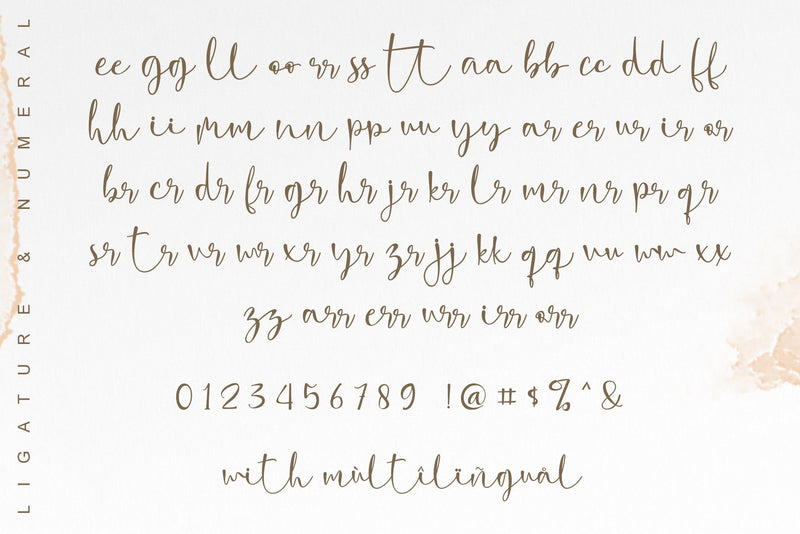 LIGATURE & NUMERAL
ee gg ll oo rr ss tt aa bb cc dd ff
hh ii mm nn pp uu yy ar er ur ir or
br cr dr fr gr hr jr kr lr mr nr pr qr
sr tr vr wr xr yr zr jj kk qq vv ww xx
zz arr err urr irr orr
0123456789 !@#$%^&
with mùltîlïñguål